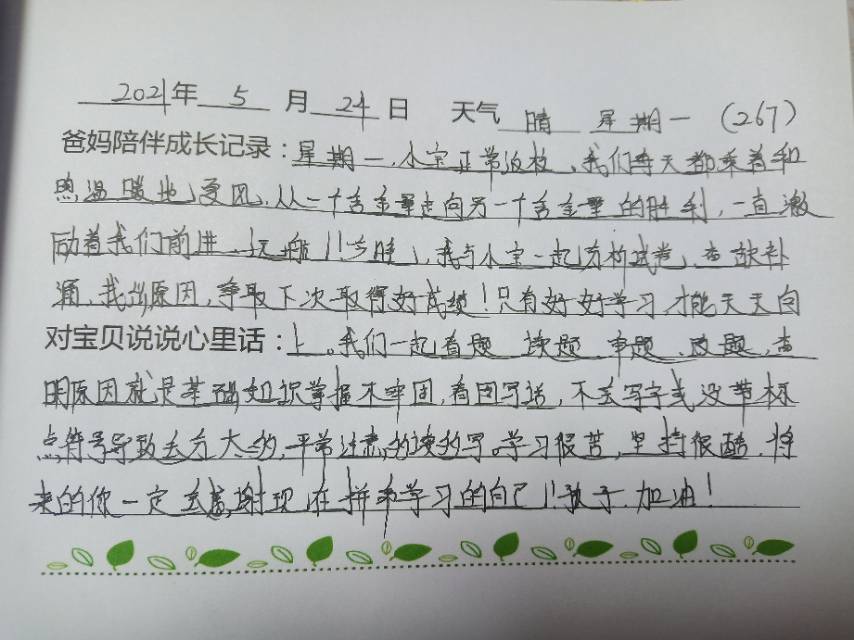 2021年 5 月 24 日 天气 晴 星期一 (267)
爸妈陪伴成长记录:星期一,小宝正常返校,我们每天都乘着和
煦温暖地春风,从一个舍金里走向另一个舍金里的胜利,一直激
励着我们前进、远航!!岁晚,我与小宝一起分析试卷,查缺补
漏,找出原因,争取下次取得好成绩!只有好好学习才能天天向
对宝贝说说心里话:上。我们一起看题、读题、审题、改题,查
明原因就是基础知识掌握不牢固,看图写话,不会写字或没带标
点符号导致丢分大的,平常注意,多读多写。学习很苦,坚持很酷,将
来的你一定会感谢现在拼命学习的自己!!孩子,加油!